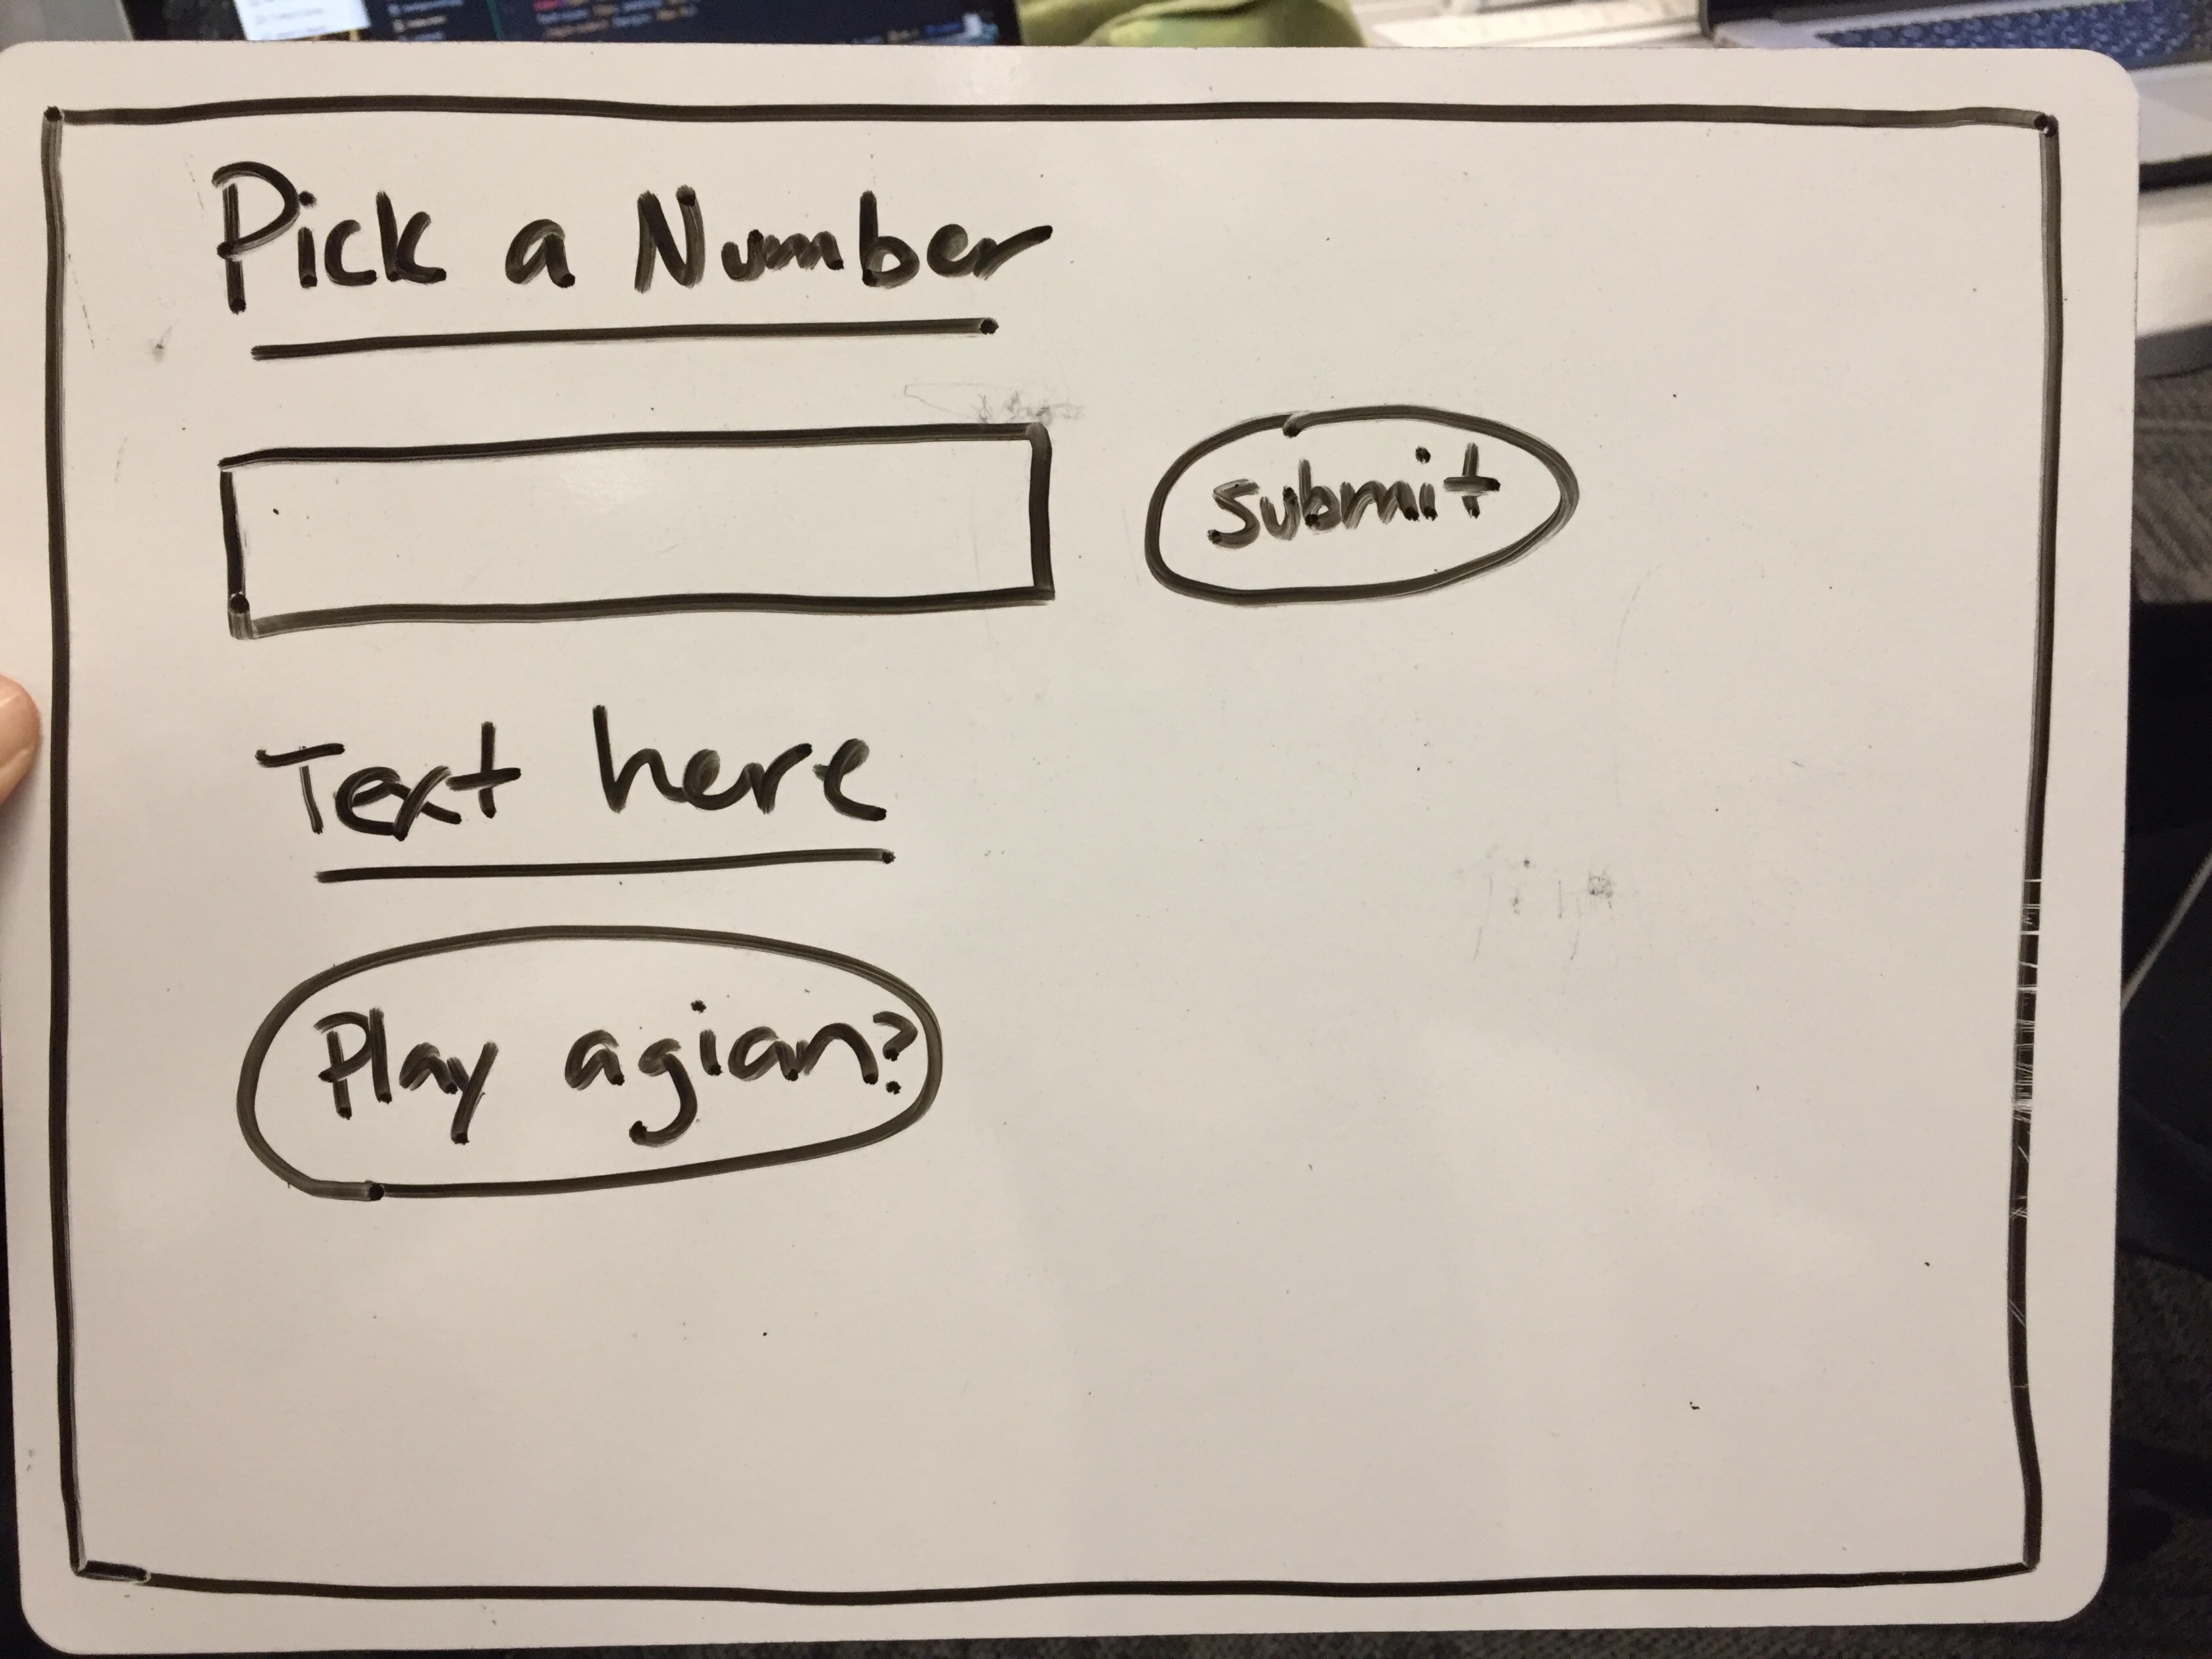 Pick a Number
submit
Text here
Play agian?